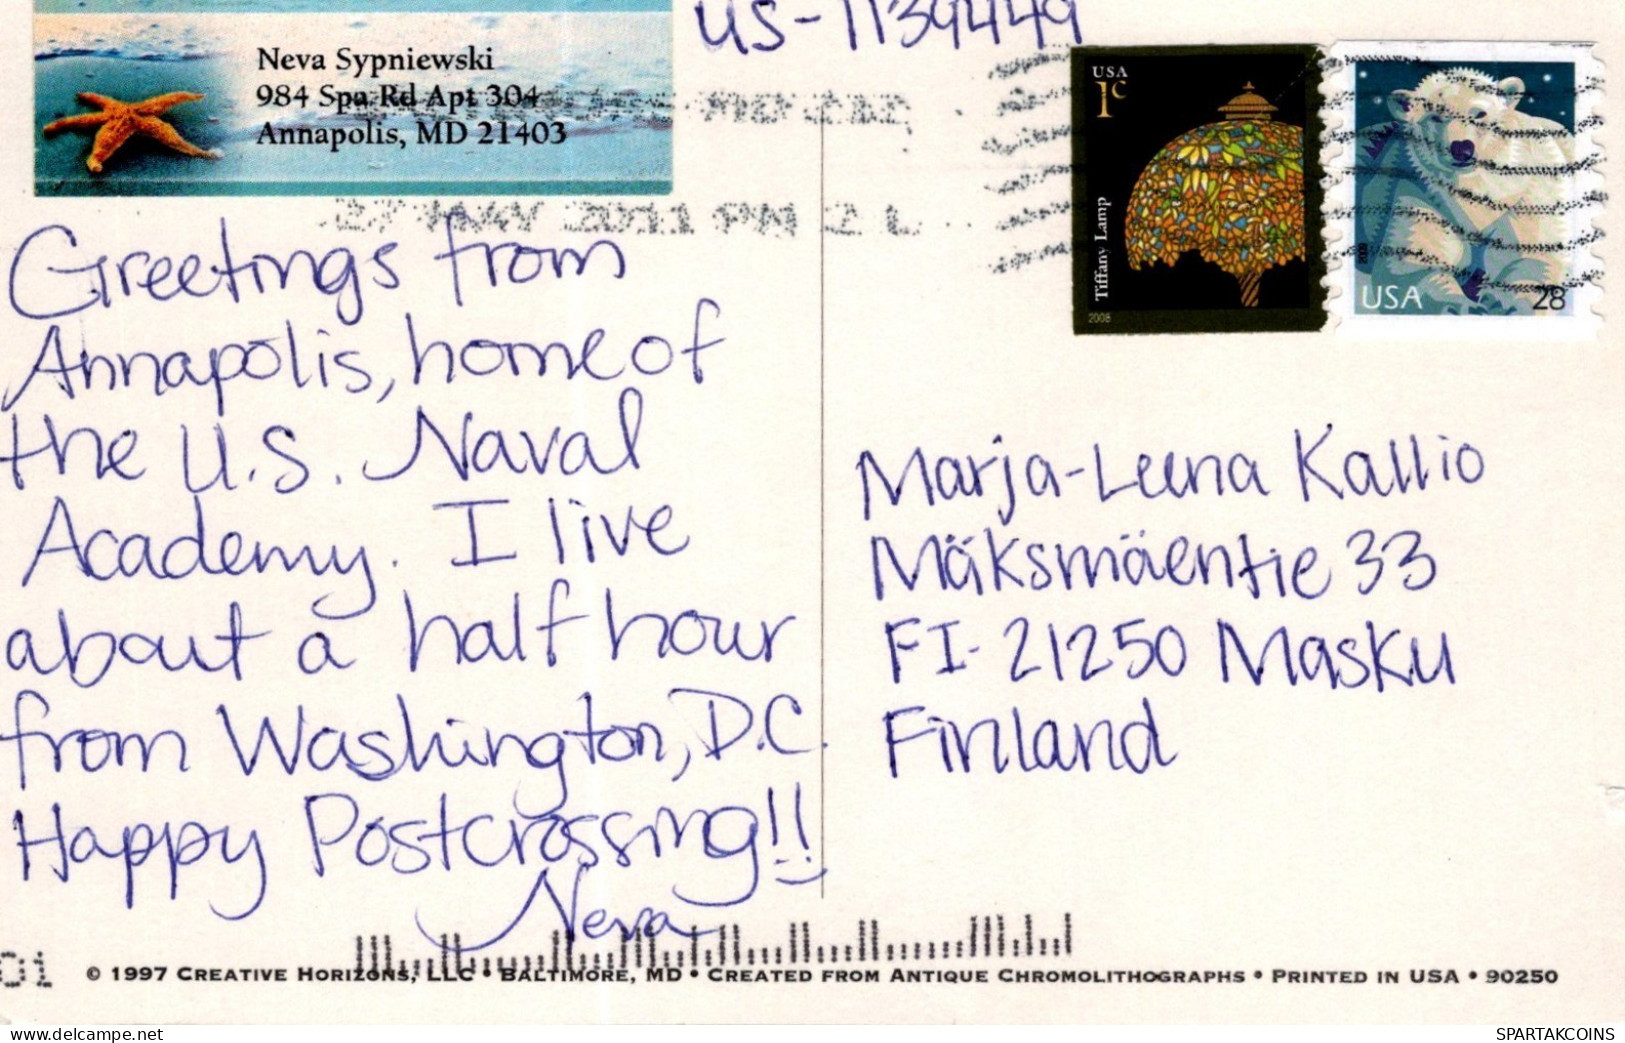 US-1139449
Neva Sypniewski
984 Spa Rd Apt 304
Annapolis, MD 21403
USA
1c
Tiffany Lamp
2008
2009
USA 28
27 MAY 2011 PM 2 L
Greetings from
Annapolis, home of
the U.S. Naval
Academy. I live
about a half hour
from Washington, D.C.
Happy Postcrossing!!
Neva
Marja-Leena Kallio
Mäksmäentie 33
FI-21250 Masku
Finland
© 1997 Creative Horizons, LLC • Baltimore, MD • Created from Antique Chromolithographs • Printed in USA • 90250
www.delcampe.net
SPARTAKCOINS